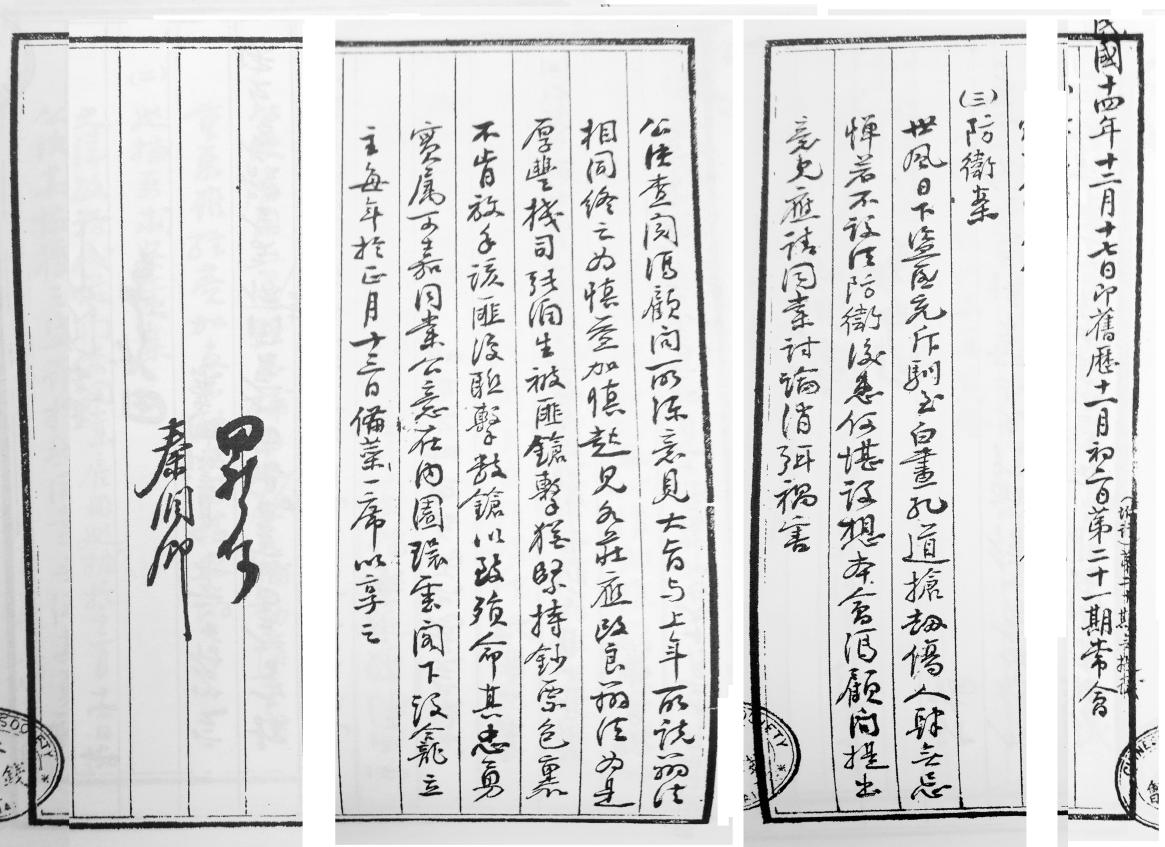 民國十四年十二月十七日即舊歷十一月初二日第二十一期常會
(三)防衛案
世風日下盜匪充斥馴至白晝孔道搶劫傷人肆無忌
憚若不設法防衛後患何堪設想本會馮顧問提出
意見應請同業討論消弭禍害
公決查閱馮顧問所條意見大旨与上年所說辦法
相同終云为慎益加慎起見各莊應改良辦法为是
厚豐棧司張润生被匪鎗擊猶堅持鈔票包裹
不肯放手該匪復聪擊数鎗以致殞命其忠勇
實属可嘉同業公意在内園環雲閣下設龕立
主每年於正月十三日備菜一席以享之
田祈原
秦润卿
SOCIETY